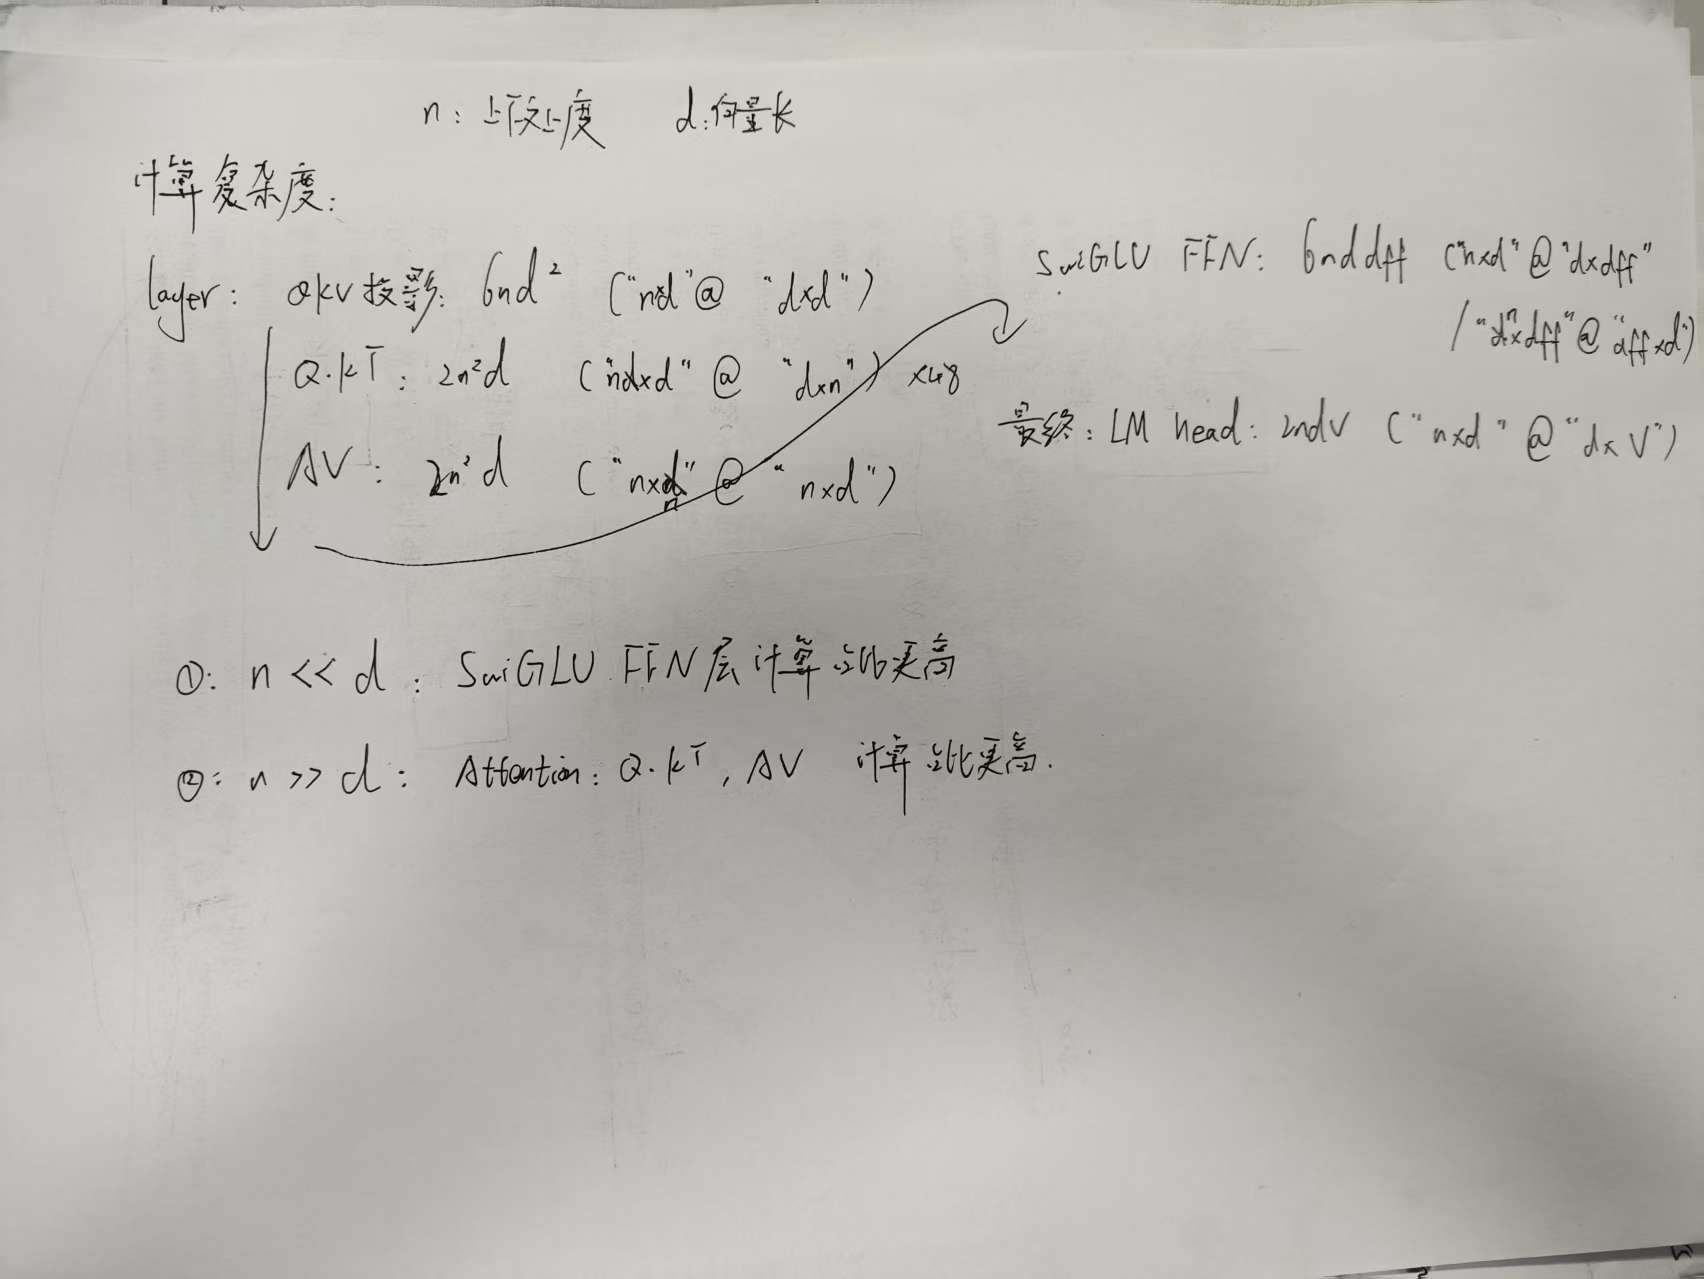 n: 上下文长度 d:向量长
计算复杂度:
layer: QKV投影: 6nd² ("nxd"@ "dxd")
Q.kᵀ: 2n²d ("ndxd" @ "dxn") x48
AV: 2n²d ("nxn" @ "nxd")
SwiGLU FFN: 6nddff ("nxd"@"dxdff"
/"nxdff"@"dffxd")
最终: LM head: 2ndV ("nxd"@"dxV")
①: n << d: SwiGLU FFN层计算占比更高
②: n >> d: Attention: Q.kᵀ, AV 计算占比更高.